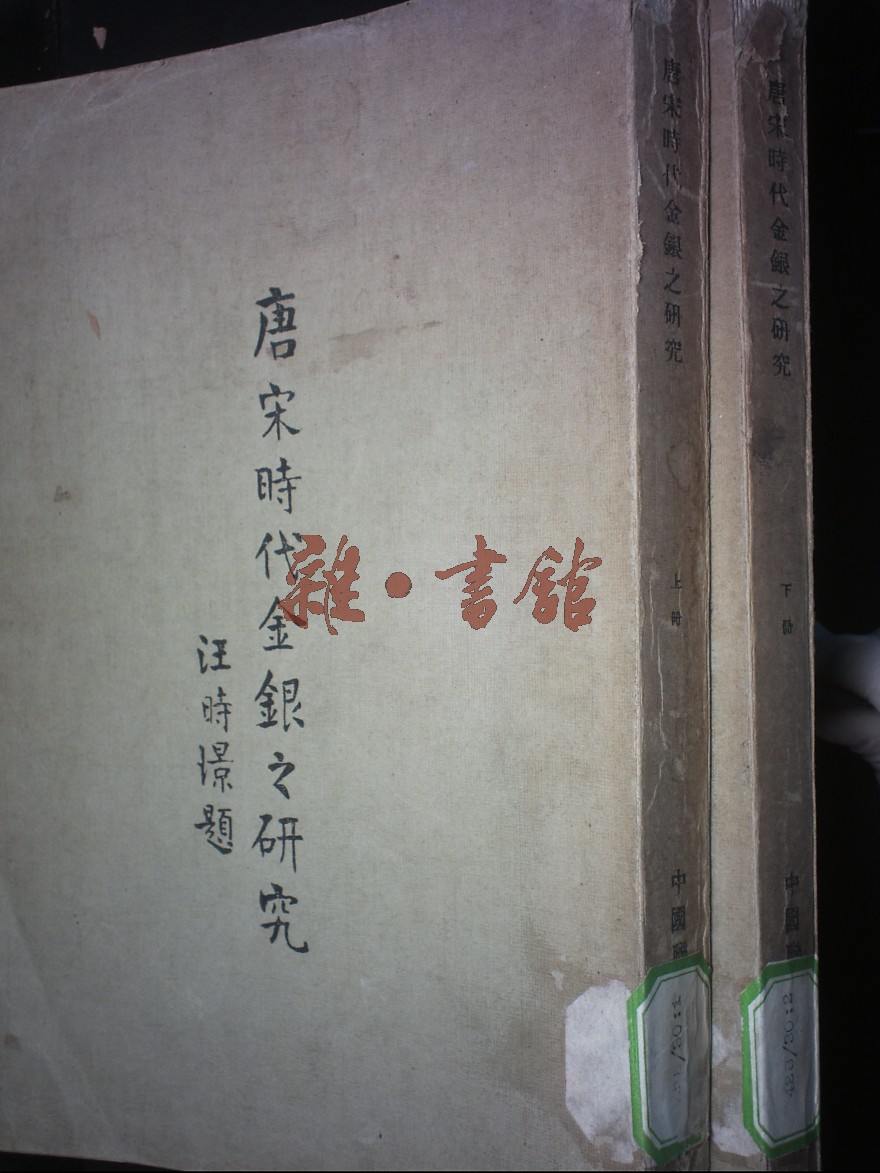 唐宋時代金銀之研究
汪時璟題
雜·書館
唐宋時代金銀之研究
上冊
中國聯
唐宋時代金銀之研究
下冊
中國聯
/30:1
423/30:2